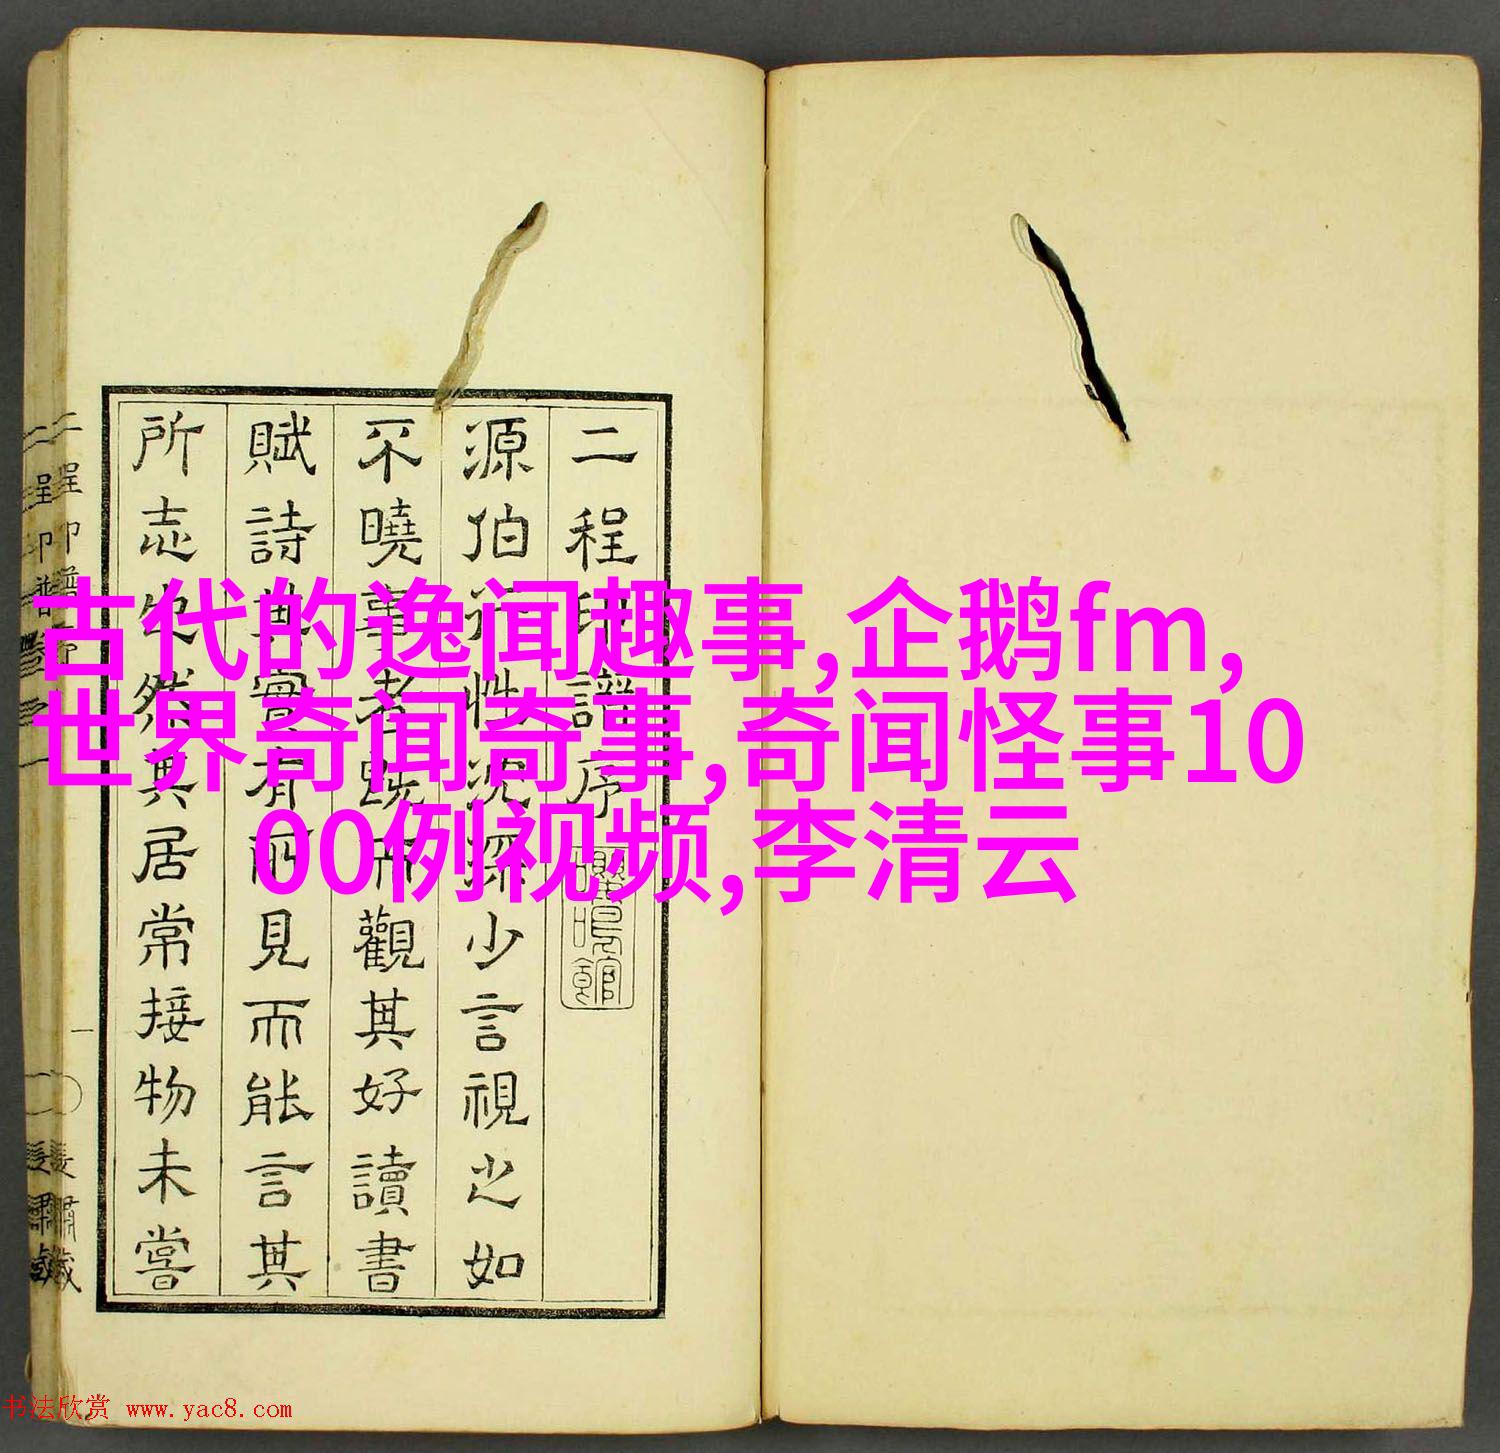 古代的逸闻趣事,企鹅fm,
世界奇闻奇事,奇闻怪事10
00例视频,李清云
二程印譜序
源伯行性沈深少言視之如
不曉事者既而觀其好讀書
賦詩其實有所見而能言其
所志也然其居常接物未嘗
书法欣赏 www.yac8.com